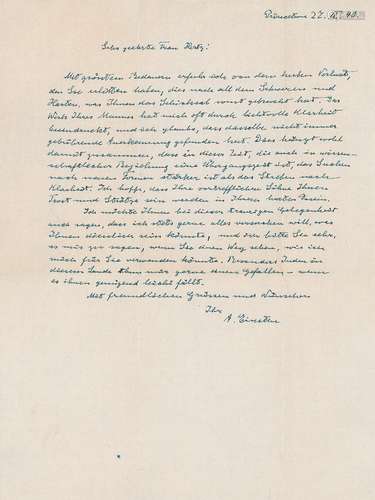 Princeton 27. V. 40.
Sehr geehrte Frau Hertz!
Mit grösstem Bedauern erfuhr ich von dem herben Verlust,
den Sie erlitten haben, dies nach all dem Schweren und
Harten, was Ihnen das Schicksal sonst gebracht hat. Das
Werk Ihres Mannes hat mich oft durch kraftvolle Klarheit
beeindruckt, und ich glaube, dass dasselbe nicht immer
gebührende Anerkennung gefunden hat. Dies hängt wohl
damit zusammen, dass in dieser Zeit, die auch in wissen-
schaftlicher Beziehung eine Übergangszeit ist, das Suchen
nach neuen Formen stärker ist als das Streben nach
Klarheit. Ich hoffe, dass Ihre vortrefflichen Söhne Ihnen
Trost und Stütze sein werden in Ihrem harten Dasein.
Ich möchte Ihnen bei dieser traurigen Gelegenheit
auch sagen, dass ich stets gerne alles versuchen will, was
Ihnen dienlich sein könnte, und ich bitte Sie sehr,
es mir zu sagen, wenn Sie einen Weg sehen, wie ich
mich für Sie verwenden könnte. Besonders Juden in
diesem Lande thun mir gerne einen Gefallen – wenn
es ihnen genügend leicht fällt.
Mit freundlichen Grüssen und Wünschen
Ihr
A. Einstein.